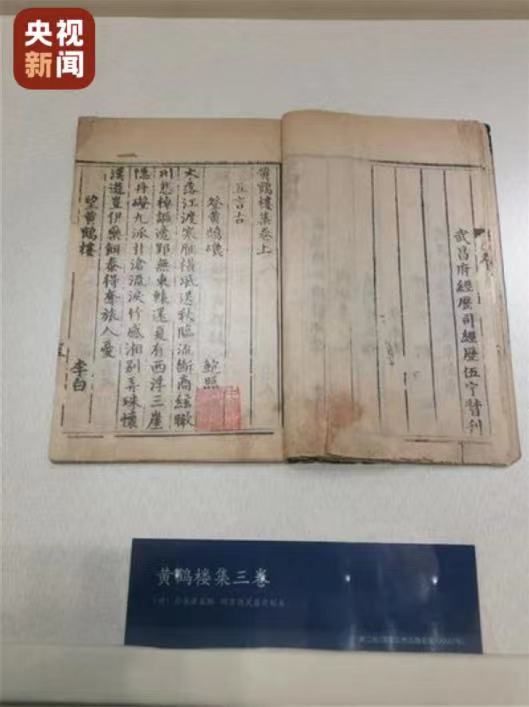 央视
新闻
武昌府經歷司經歷伍宁督刊
黄鶴樓集卷上
五言古
登黄鶴磯 鮑照
木落江渡寒雁還風送秋臨流斷商絃瞰
川悲棹謳適郢無東轅還夏有西浮三崖
隱丹磴九派引滄流淚竹感湘別弄珠懷
漢遊豈伊藥餌泰得奪旅人憂
望黄鶴樓
李白
黄鹤楼集三卷